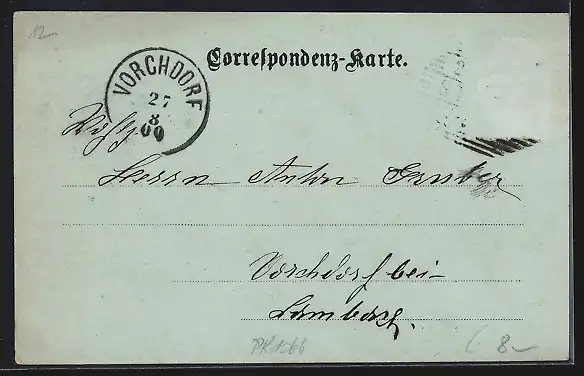 12
Correspondenz-Karte.
VORCHDORF
27
8
00
Herrn Anton Gruber
Vorchdorf bei
Lambach.
8-